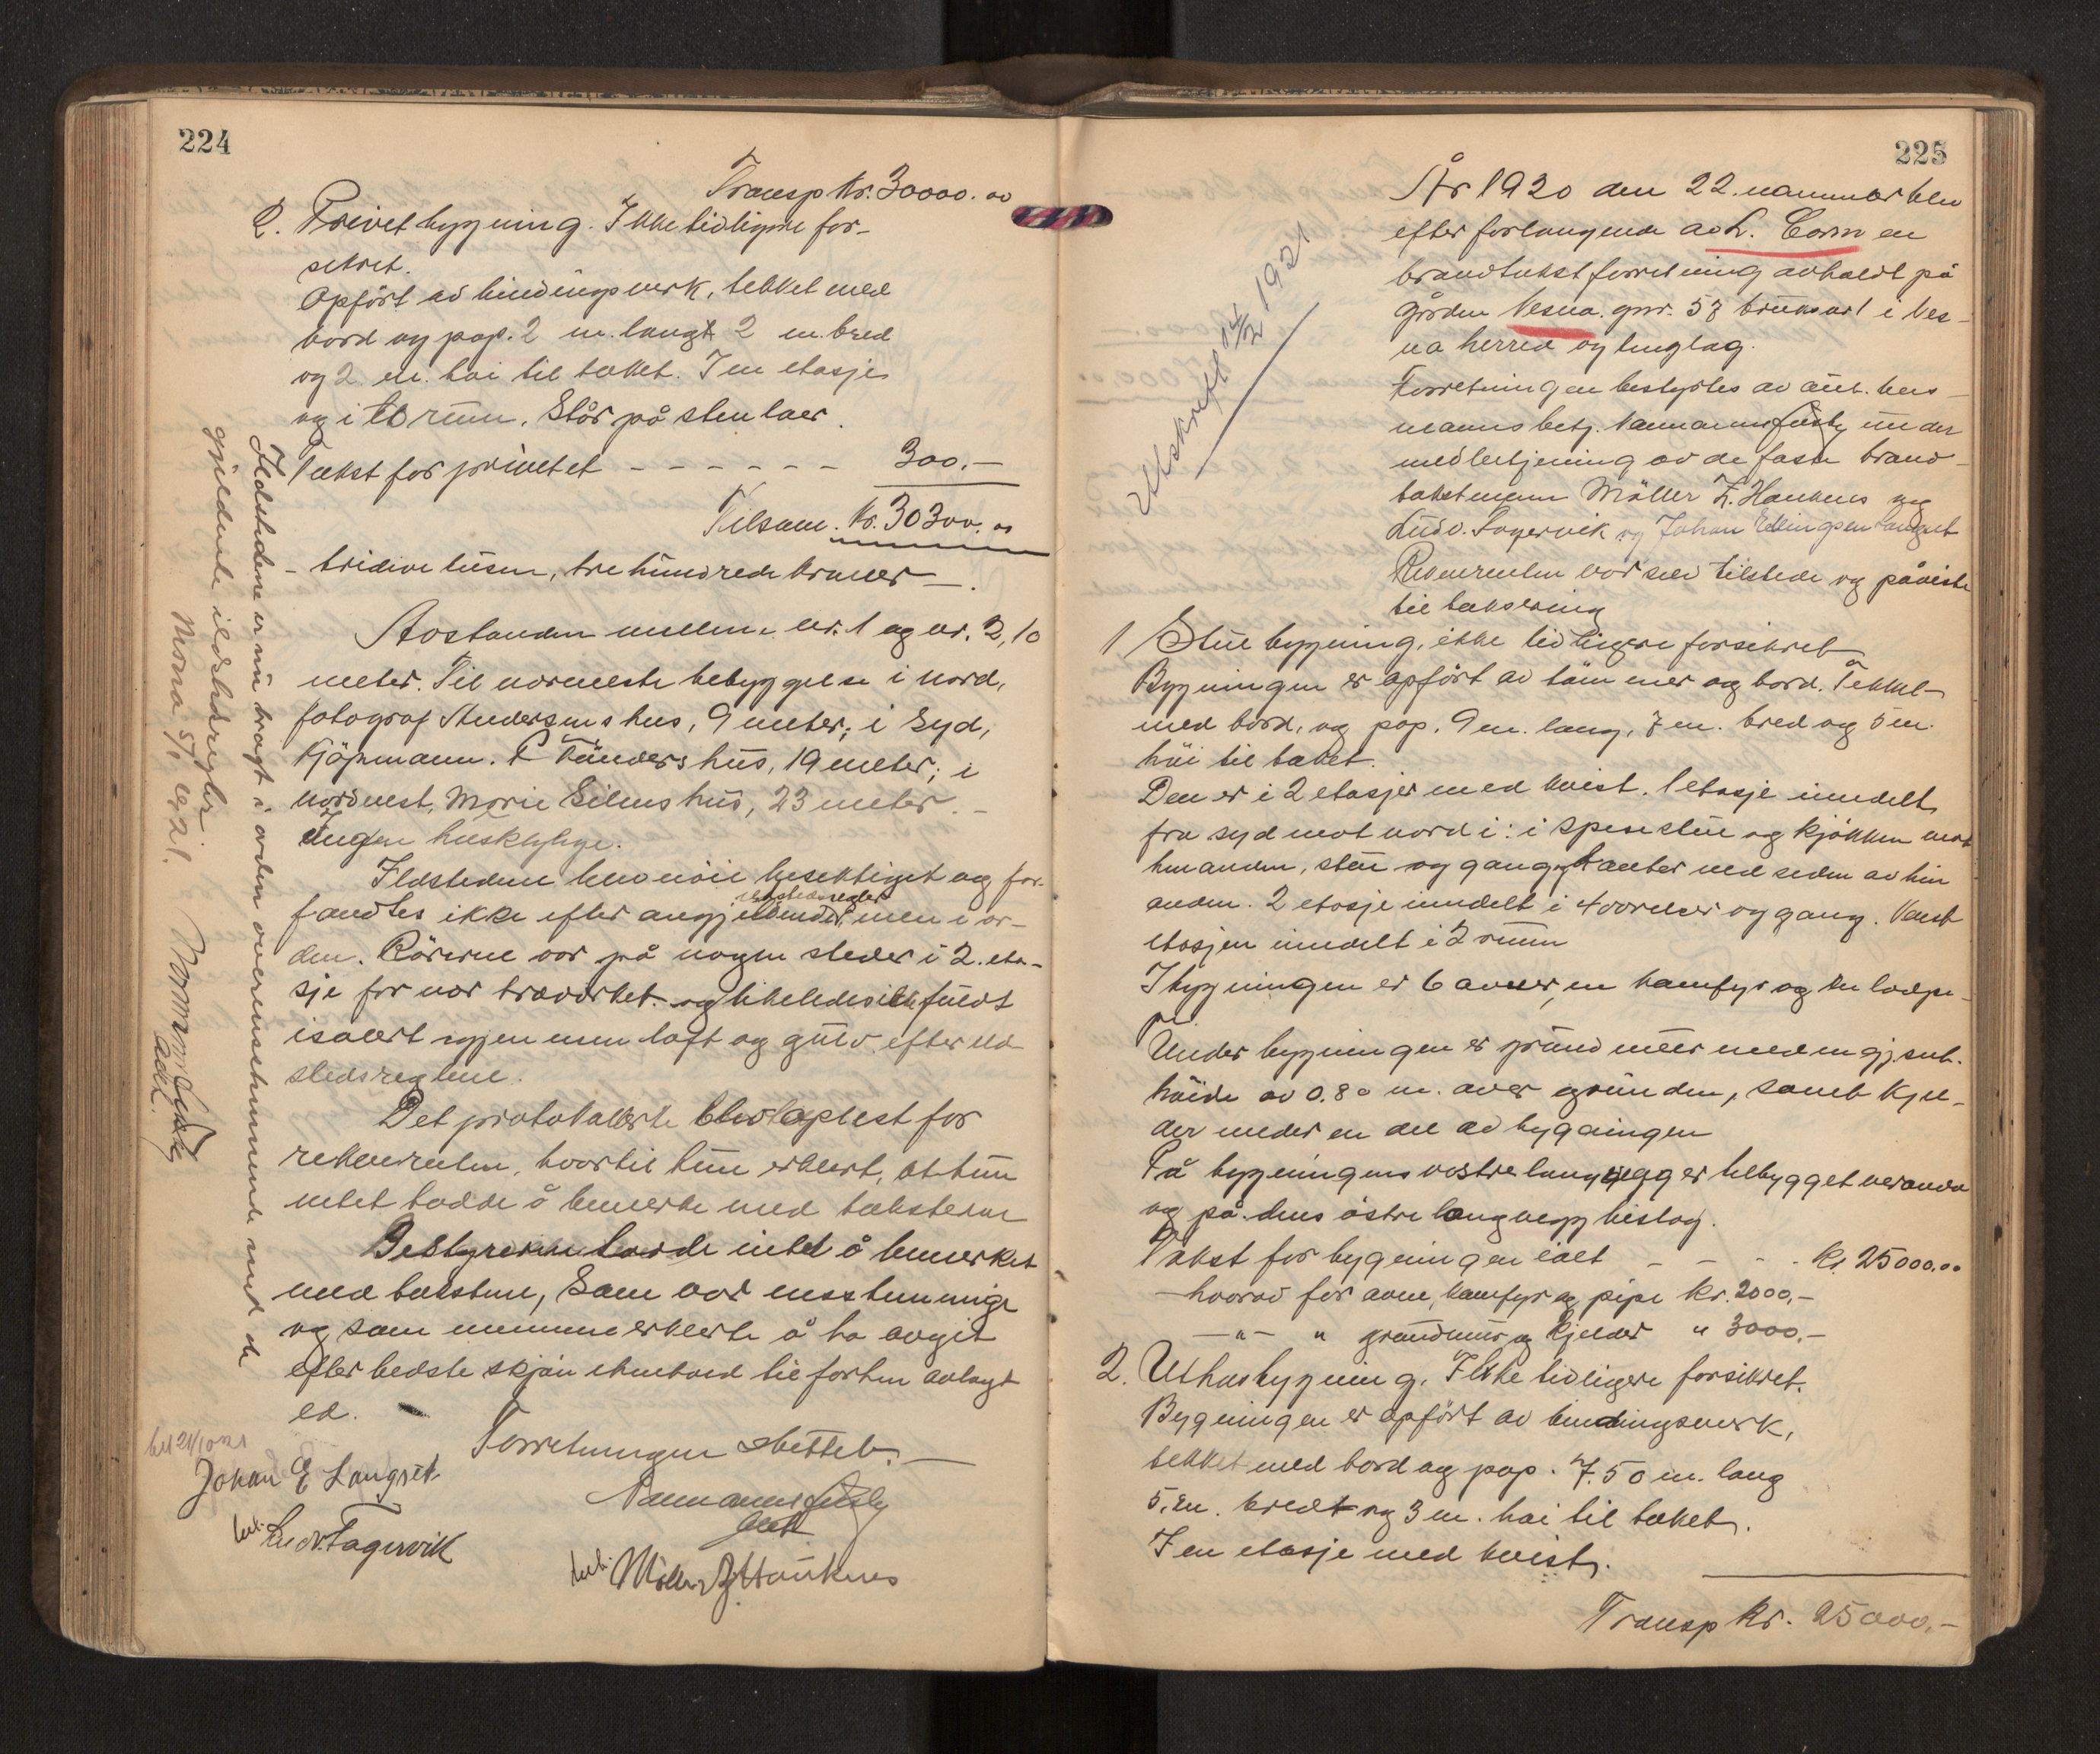 224
Transp Kr. 30000.00
2. Privetbygning. Ikke tidligere for-
sikret.
Opført av bindingsverk, tekket med
bord og pap. 2 m. langt 2 m. bred
og 2 m. høi til taket. I en etasje
og i to rum. Står på stenlaer.
Takst for privetet - - - - - - 300.-
Tilsam. Kr. 30300.00
- tridive tusen, tre hundrede kroner -.
Avstanden mellem nr. 1 og nr. 2, 10
meter. Til nærmeste bebyggelse i nord,
fotograf Andersens hus, 9 meter; i syd,
Kjøpmann. P hus, 19 meter; i
nordvest, Marie hus, 23 meter. -
Ingen husklynge.
Ildstedene blev nøie besektiget og for-
fandtes ikke efter angjeldende ildstedsregler men i or-
den. Rörene var på nogen steder i 2. eta-
sje for nær træverket og likeledes ikke fuldt
isolert igjennem loft og gulv efter ild-
stedsreglene.
Det protokollerte blev oplest for
rekvirenten, hvortil hun erklært, at hun
intet hadde å bemerke med taksterne
Bestyreren havde intet å bemerket
med taksten, som var enstemmige
og som mennene erklærte å ha avgit
efter bedste skjøn i henhold til forhen avlagt
ed.
Forretningen sluttet. -
Johan E Langset
Ludv. Fagervik
Møller Z. Hauknes
Ildstedene er nu bragt i orden overensstemmende med de
gjeldende ildstedsregler
225
År 1920 den 22. november blev
efter forlangende av L. en
brandtakstforretning avholdt på
gården Nesna. gnr. 58 bruksnr 1 i Nes-
na herred og tinglag.
Forretningen bestyrtes av aut. lens-
mannsbetj. under
medbetjening av de faste brand-
takstmenn Møller Z. Haukenes og
Ludv. Fagervik og Johan Ellingsen Langset
Rekvirenten var selv tilstede og påviste
til taksering
Utskrift 14/2 1921
1, Stuebygning, ikke tidligere forsikret
Bygningen er opført av tømmer og bord. Tekket
med bord, og pap. 9 m. lang, 7 m. bred og 5 m.
høi til taket.
Den er i 2 etasjer med kvist. 1 etasje inndelt
fra syd mot nord i: i spisestue og kjøkken mot
hinanden, stue og gang og kamber ved siden av hin
anden. 2 etasje inndelt i 4 værelser og gang. Kvist
etasjen inndelt i 2 rum
I bygningen er 6 ovner, en komfyr og en
Under bygningen er grundmur med en gj.snt.
høide av 0.80 m. over grunden, samt kjel-
der under en del av bygningen
På bygningens vestre langvegg er tilbygget veranda
og på dens østre langvegg bislag.
Takst for bygningen ialt - - - Kr 25000.00
- hvorav for ovne, komfyr og pipe kr. 2000,-
- " - " grundmur og kjelder " 3000.-
2. Uthusbygning. Ikke tidligere forsikret.
Bygningen er opført av bindingsverk,
tekket med bord og pap. 7.50 m. lang
5. m. bredt og 3 m. høi til taket.
I en etasje med kvist.
Transp kr. 25000,-